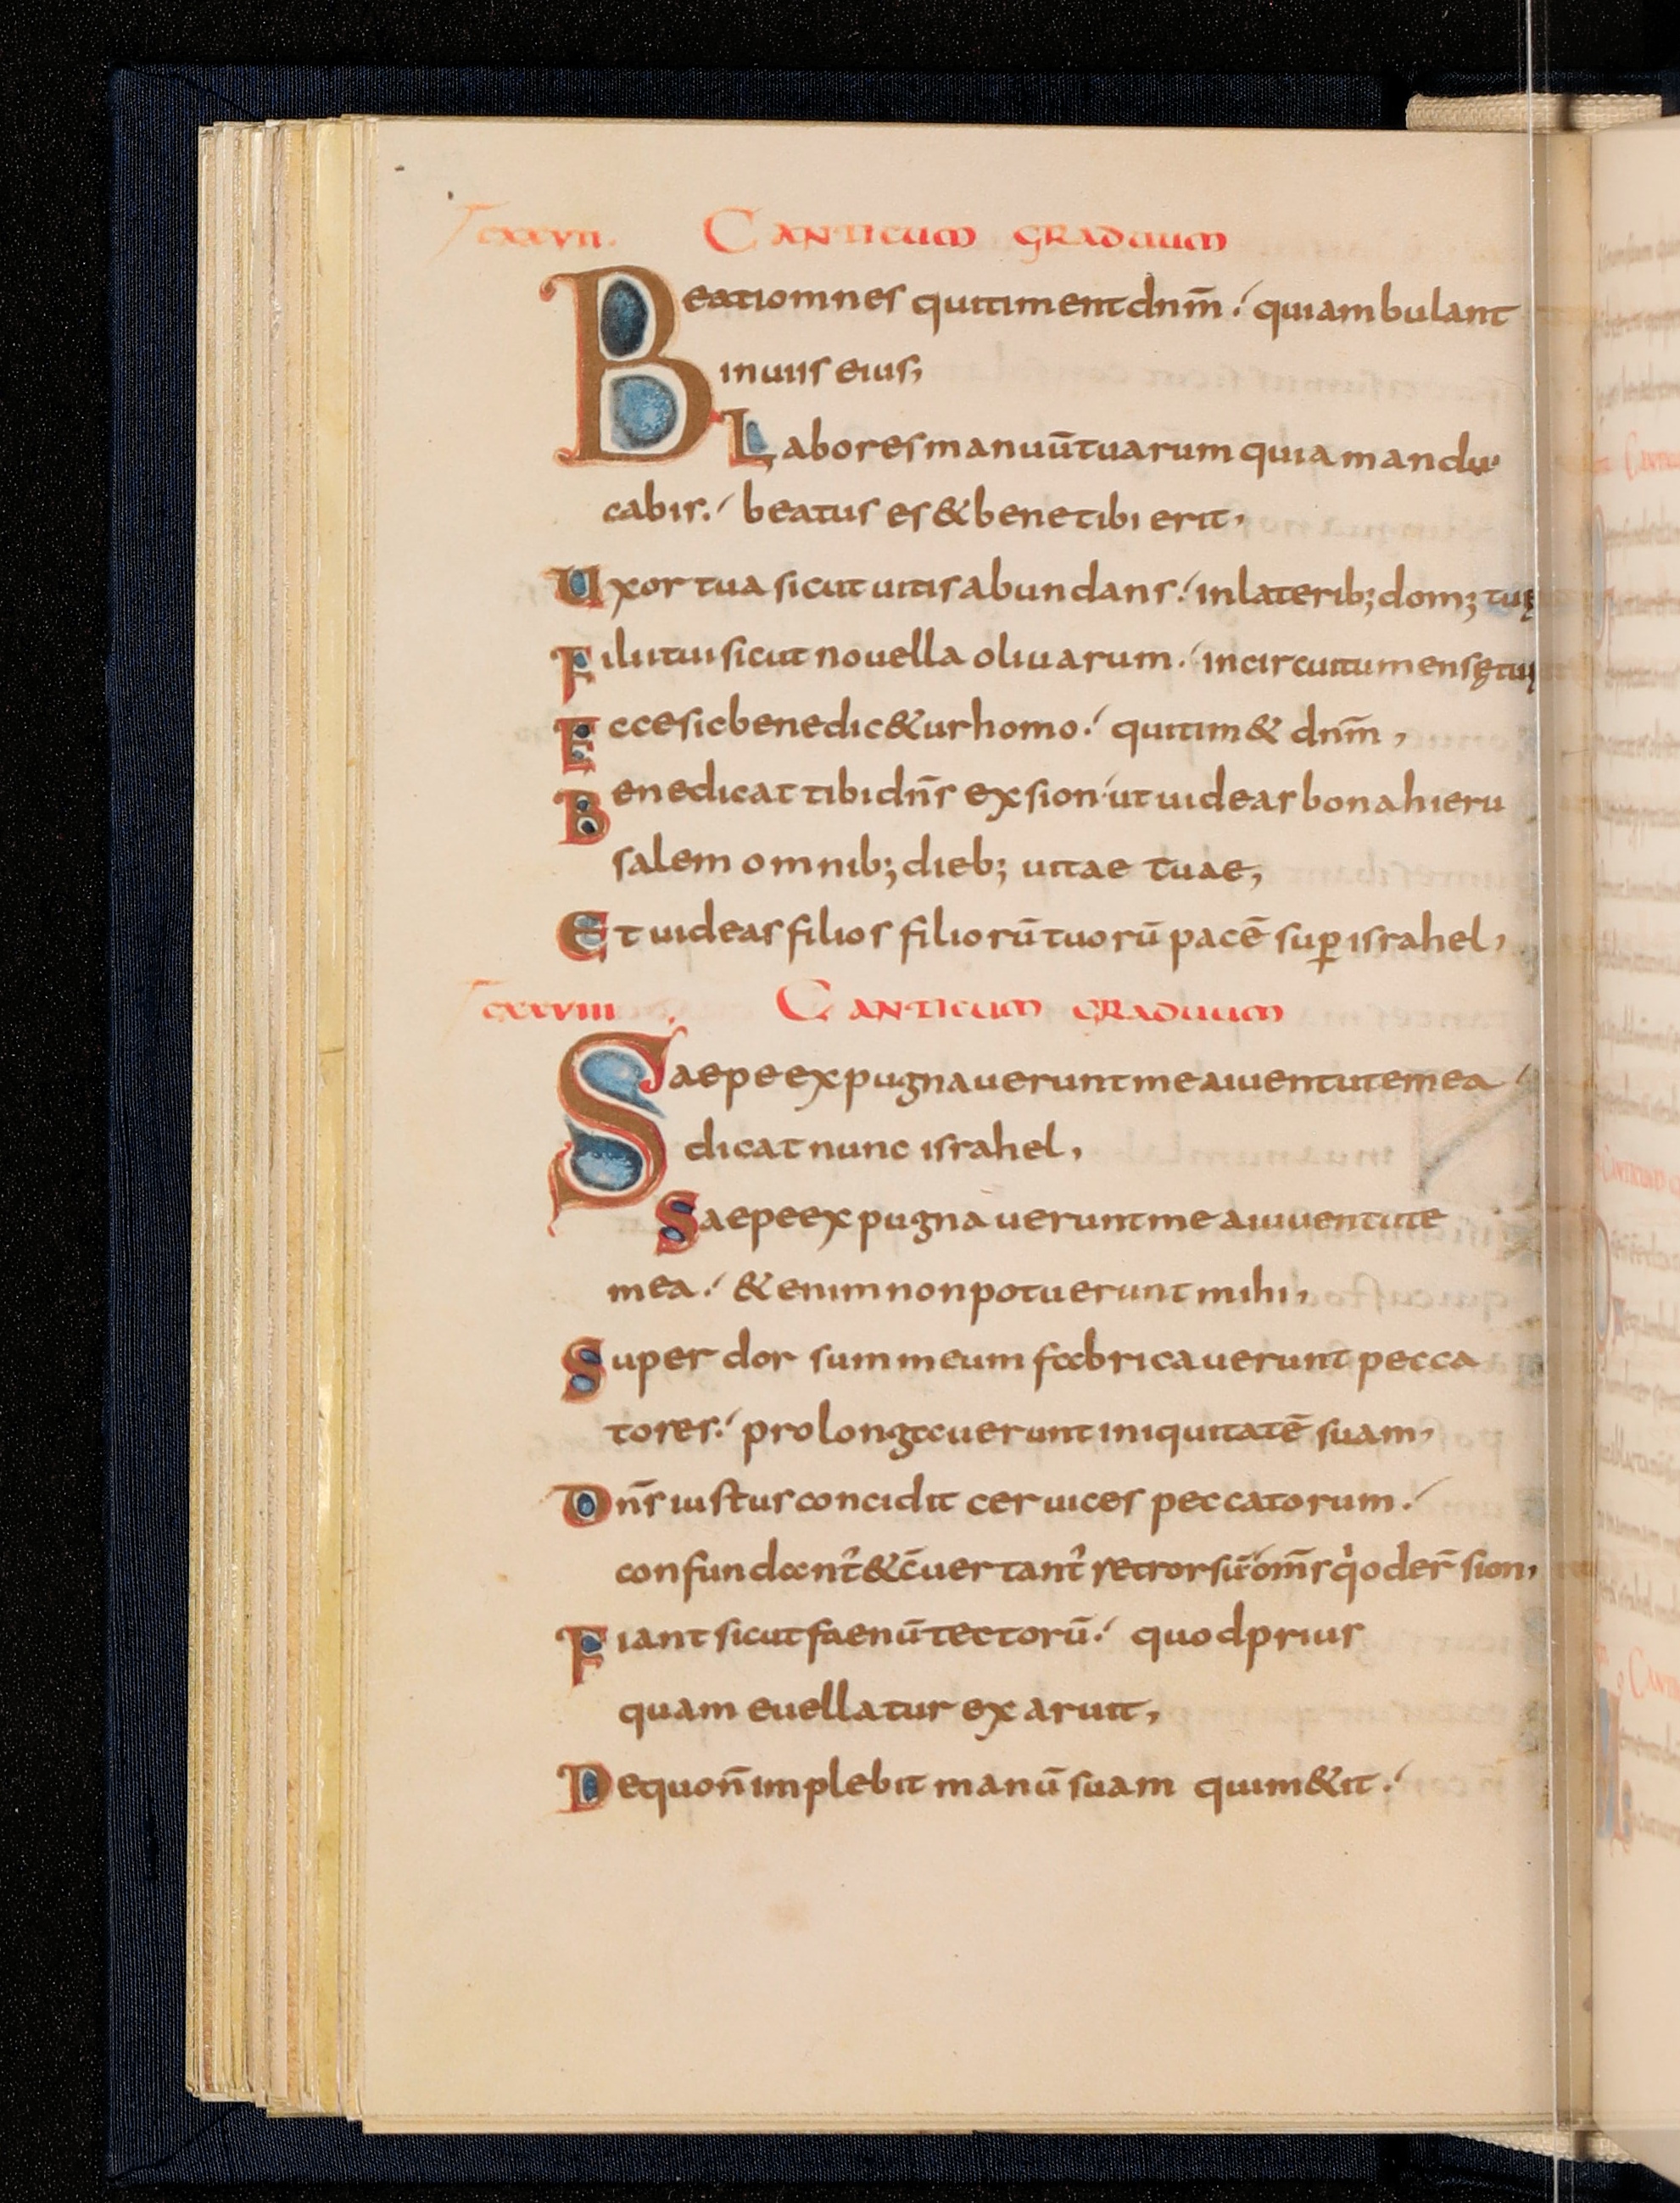 CXXVII. CANTICUM GRADUUM
Beati omnes qui timent dnm̄ : qui ambulant
in uiis eius;
Labores manuū tuarum quia mandu
cabis : beatus es & bene tibi erit,
Uxor tua sicut uitis abundans : in laterib; dom; tuę
Filii tui sicut nouella oliuarum : in circuitu mensę tuę
Ecce sic benedic&ur homo : qui tim& dnm̄,
Benedicat tibi dn̄s ex sion ut uideas bona hieru
salem omnib; dieb; uitae tuae,
Et uideas filios filiorū tuorū pacē sup̱ israhel,
CXXVIII CANTICUM GRADUUM
Saepe expugnauerunt me a iuentute mea
dicat nunc israhel,
Saepe expugnauerunt me a iuuentute
mea : &enim non potuerunt mihi,
Super dorsum meum fabricauerunt pecca
tores : prolongauerunt iniquitatē suam,
Dn̄s iustus concidit ceruices peccatorum :
confundant̄ & c̄uertant̄ retrorsū om̄s qͥ oder̄ sion,
Fiant sicut faenū tectorū : quod prius
quam euellatur exaruit,
De quo n̄ implebit manū suam qui m&it :